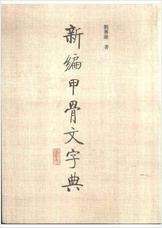 新編甲骨文字典
劉興隆 著